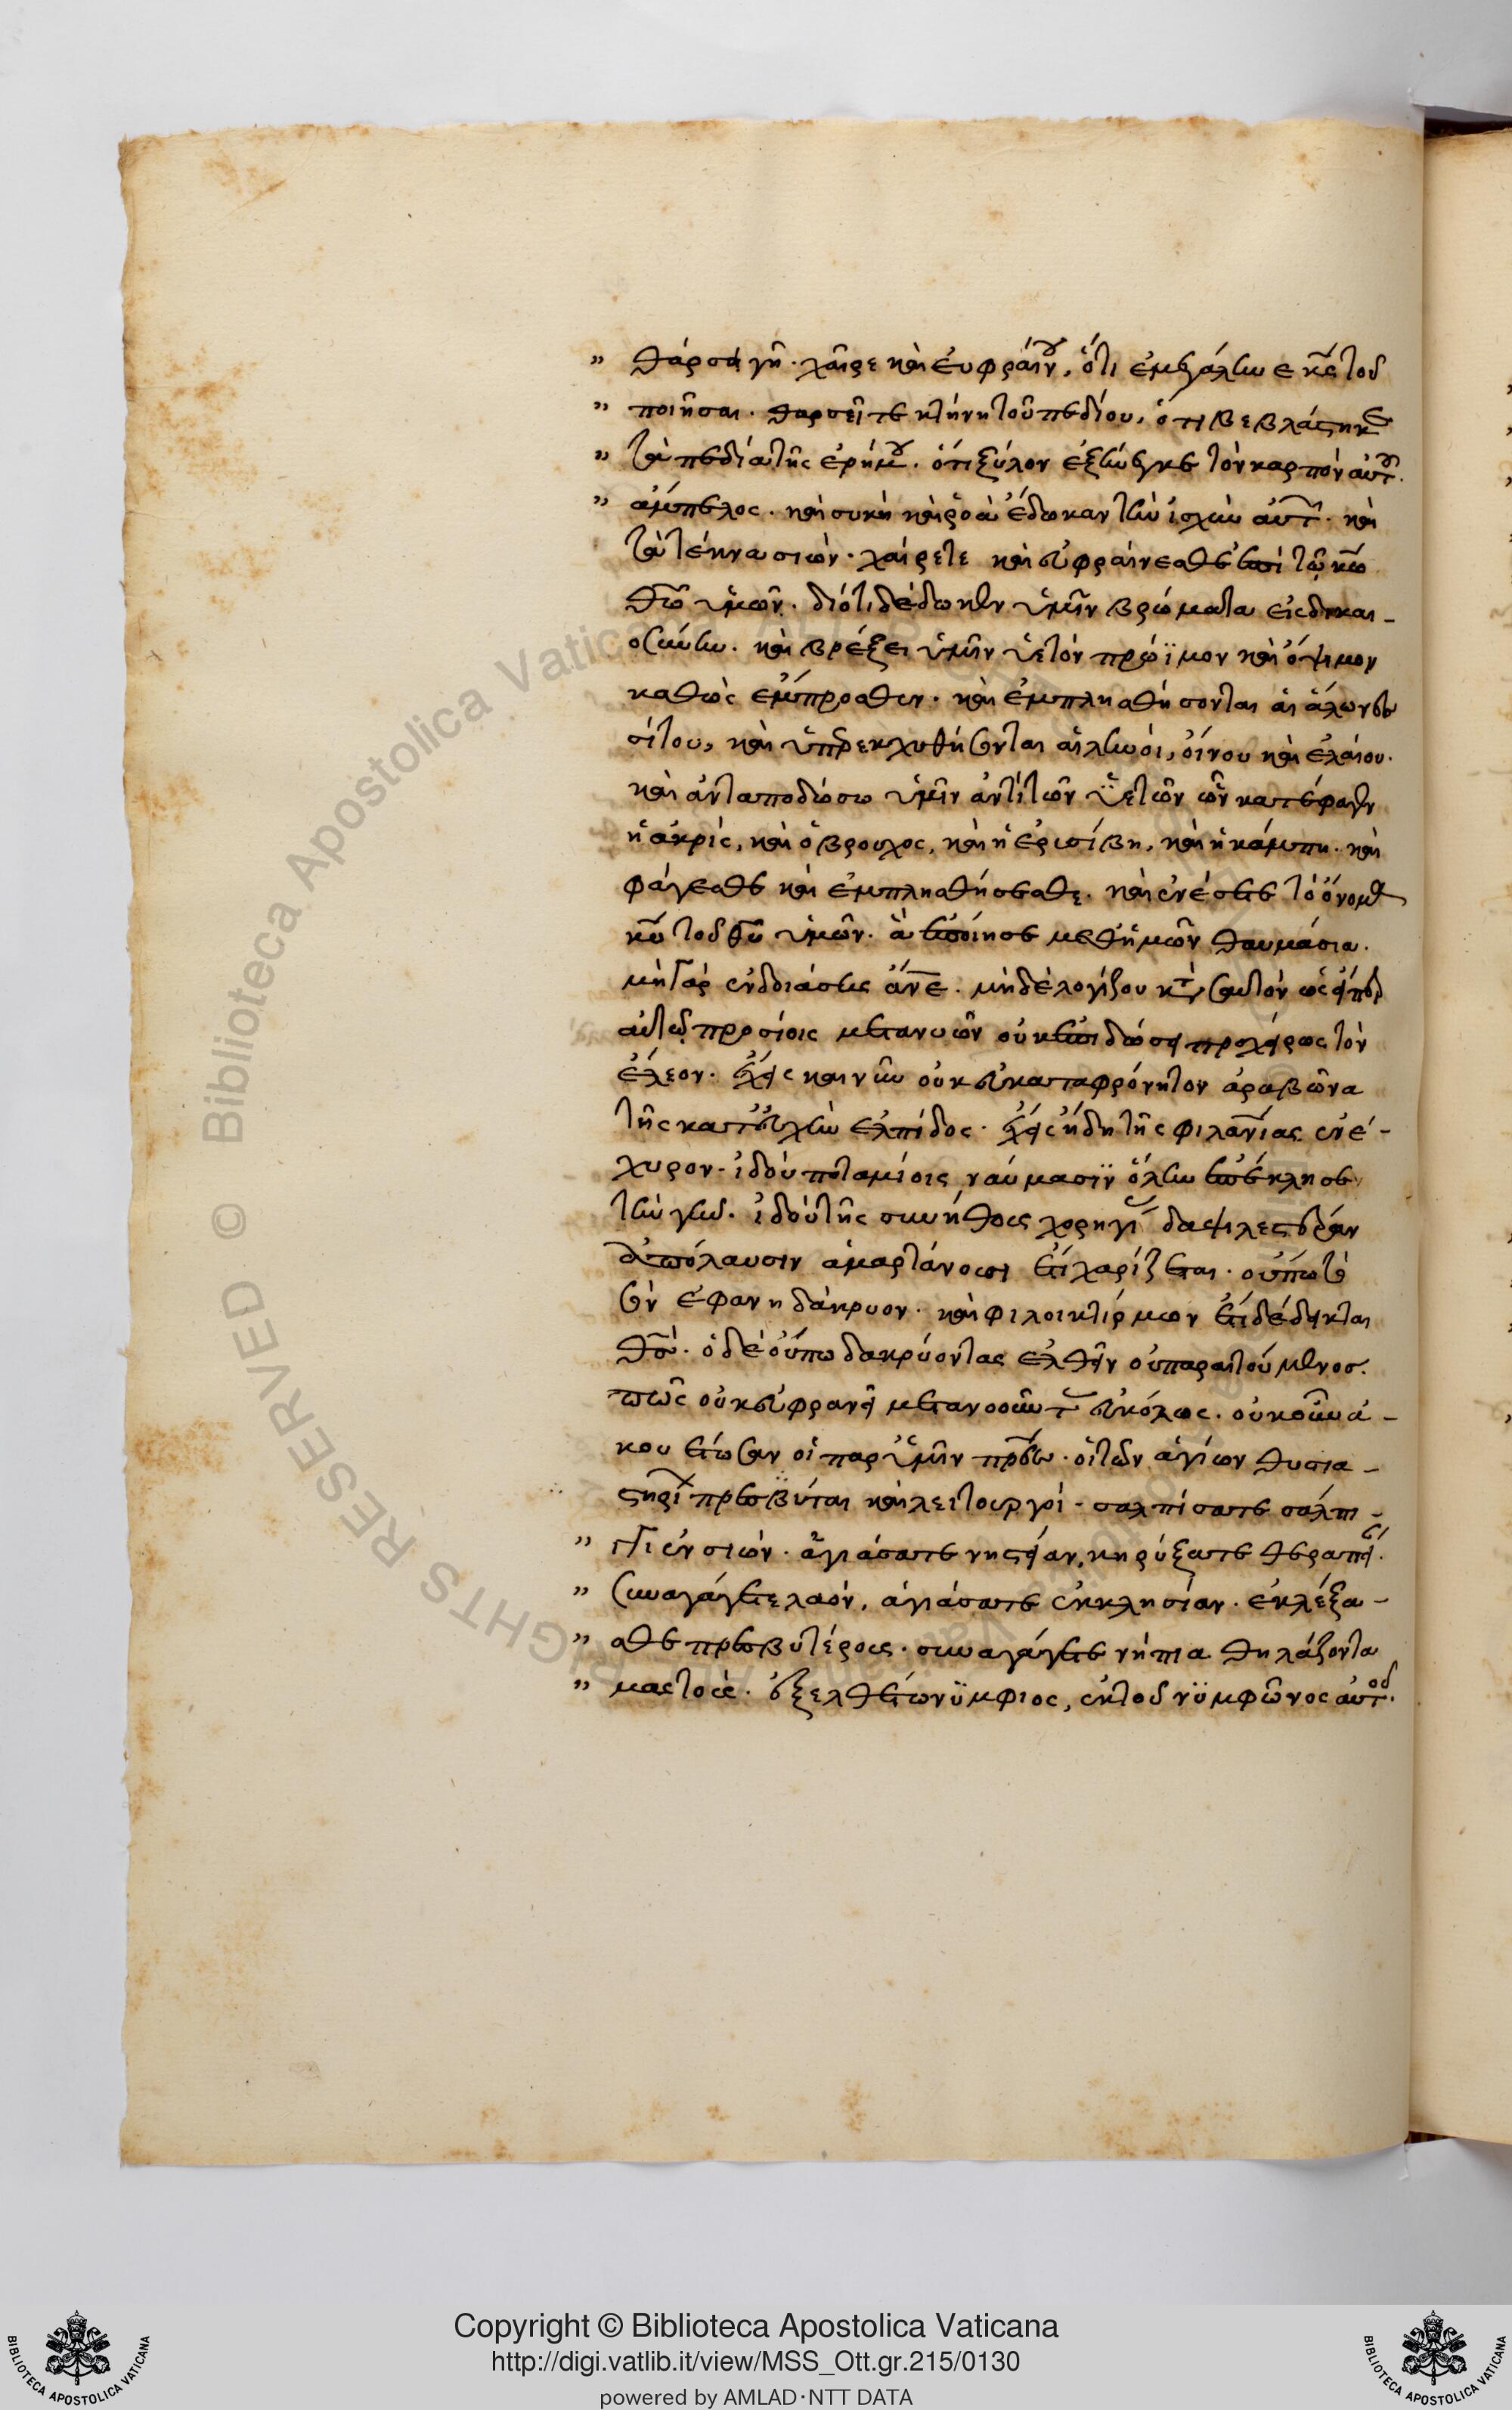 " θάρσει γῆ. χαῖρε καὶ εὐφραίνου, ὅτι ἐμεγάλυνε κς τοῦ
" ποιῆσαι. θαρσεῖτε κτήνη τοῦ πεδίου, ὅτι βεβλάστηκε
" τὰ πεδία τῆς ἐρήμου. ὅτι ξύλον ἐξήνεγκε τὸν καρπὸν αὐτοῦ.
" ἄμπελος. καὶ συκῆ καὶ ῥοὰ ἔδωκαν τὴν ἰσχὺν αὐτῶν. καὶ
τὰ τέκνα σιών. χαίρετε καὶ εὐφραίνεσθε ἐπὶ τῷ κω
θω ὑμῶν. διότι δέδωκεν ὑμῖν βρώματα εἰς δικαι-
οσύνην. καὶ βρέξει ὑμῖν ὑετὸν πρώϊμον καὶ ὄψιμον
καθὼς ἔμπροσθεν. καὶ ἐμπλησθήσονται αἱ ἅλωνες
σίτου, καὶ ὑπερεκχυθήσονται αἱ ληνοὶ, οἴνου καὶ ἐλαίου.
καὶ ἀνταποδώσω ὑμῖν ἀντὶ τῶν ἐτῶν ὧν κατέφαγεν
ἡ ἀκρὶς, καὶ ὁ βροῦχος, καὶ ἡ ἐρισίβη, καὶ ἡ κάμπη. καὶ
φάγεσθε καὶ ἐμπλησθήσεσθε. καὶ αἰνέσετε τὸ ὄνομα
κυ τοῦ θυ ὑμῶν. ἃ ἐποίησε μεθ' ἡμῶν θαυμάσια.
μὴ γὰρ ἐνδοιάσῃς ανε. μὴ δὲ λογίζου κατὰ σαυτὸν ὡς εἴπερ
αὐτῷ προσίοις μετανοῶν οὐκ ἐπιδώσει προχείρως τὸν
ἔλεον. ἔχεις καὶ νῦν οὐκ εὐκαταφρόνητον ἀραβῶνα
τῆς κατ' εὐχὴν ἐλπίδος. ἔχεις ἤδη τῆς φιλανίας ἐνέ-
χυρον. ἰδοὺ ποταμίοις νάμασιν ὅλην ἐπέκλησε
τὴν γῆν. ἰδοὺ τῆς συνήθους χορηγίας δαψιλεστέραν
ἀπόλαυσιν ἁμαρτάνουσι ἔτι χαρίζεται. οὔπω τὸ
σὸν ἐφάνη δάκρυον. καὶ φιλοικτίρμων ἔτι δέδεικται
θς. ὁ δὲ οὔπω δακρύοντας ἐλεεῖν οὐ παραιτούμενος.
πῶς οὐκ εὐφρανεῖ μετανοοῦντας εὐκόλως. οὐκοῦν ἀ-
κουέτωσαν οἱ παρ' ὑμῖν πρες. οἱ τῶν ἁγίων θυσια-
στηρίων πρεσβύται καὶ λειτουργοί. σαλπίσατε σάλπι-
" γγι ἐν σιών. ἁγιάσατε νηστείαν, κηρύξατε θεραπείαν.
" συναγάγετε λαόν, ἁγιάσατε ἐκκλησίαν. ἐκλέξα-
" σθε πρεσβυτέρους. συναγάγετε νήπια θηλάζοντα
" μαστούς. ἐξελθέτω νυμφίος, ἐκ τοῦ νυμφῶνος αὐτοῦ.
© Biblioteca Apostolica Vaticana
ALL RIGHTS RESERVED
Copyright © Biblioteca Apostolica Vaticana
http://digi.vatlib.it/view/MSS_Ott.gr.215/0130
powered by AMLAD·NTT DATA
BIBLIOTECA APOSTOLICA VATICANA
BIBLIOTECA APOSTOLICA VATICANA